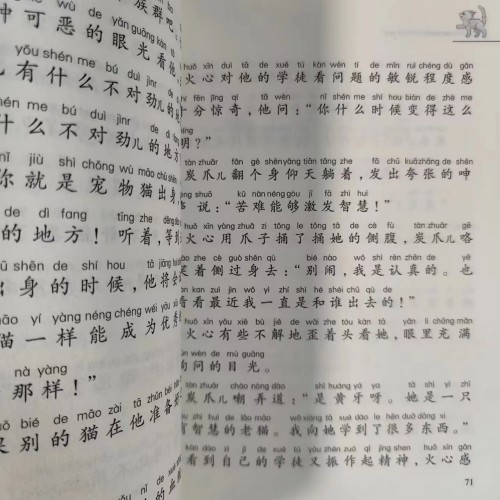 族群吧
wù de yǎn guāng kàn
种可恶的眼光看他
yǒu shén me bú duì jìnr
有什么不对劲儿的
shén me bú duì jìnr de dì fang
什么不对劲儿的地方
nǐ jiù shì chǒng wù māo chū shēn
你就是宠物猫出身
de dì fang tīng zhe děng
的地方！听着，等到
shēn de shí hou tā jiāng huì
身的时候，他将会
yí yàng néng chéng wéi yōu xiù
猫一样能成为优秀
nà yàng
那样！”
bié de māo zài tā zhǔn bèi
别的猫在他准备
huǒ xīn duì tā de xué tú kàn wèn tí de mǐn ruì chéng dù gǎn
火心对他的学徒看问题的敏锐程度感
fēn jīng qí tā wèn nǐ shén me shí hou biàn de zhè me
十分惊奇，他问：“你什么时候变得这么
明？”
tàn zhuǎr fān gè shēn yǎng tiān tǎng zhe fā chū kuā zhāng de shēn
炭爪儿翻个身仰天躺着，发出夸张的呻
shuō kǔ nàn néng gòu jī fā zhì huì
说：“苦难能够激发智慧！”
huǒ xīn yòng zhuǎ zi tǒng le tǒng tā de cè fù tàn zhuǎr gē
火心用爪子捅了捅她的侧腹，炭爪儿咯
xiào zhe cè guò shēn qù bié nào wǒ shì rèn zhēn de yě
笑着侧过身去：“别闹，我是认真的。也
kàn kan zuì jìn wǒ yì zhí shì hé shéi chū qù de
看看最近我一直是和谁出去的！”
huǒ xīn yǒu xiē bù jiě de wāi zhe tóu kàn tā yǎn li chōng mǎn
火心有些不解地歪着头看她，眼里充满
xún wèn de mù guāng
询问的目光。
tàn zhuǎr cháo nòng dào shì huáng yá ya tā shì yì zhī
炭爪儿嘲弄道：“是黄牙呀。她是一只
yǒu zhì huì de lǎo māo wǒ xiàng tā xué dào le hěn duō dōng xi
有智慧的老猫。我向她学到了很多东西。”
kàn dào zì jǐ de xué tú yòu zhèn zuò qǐ jīng shen huǒ xīn gǎn
看到自己的学徒又振作起精神，火心感
71